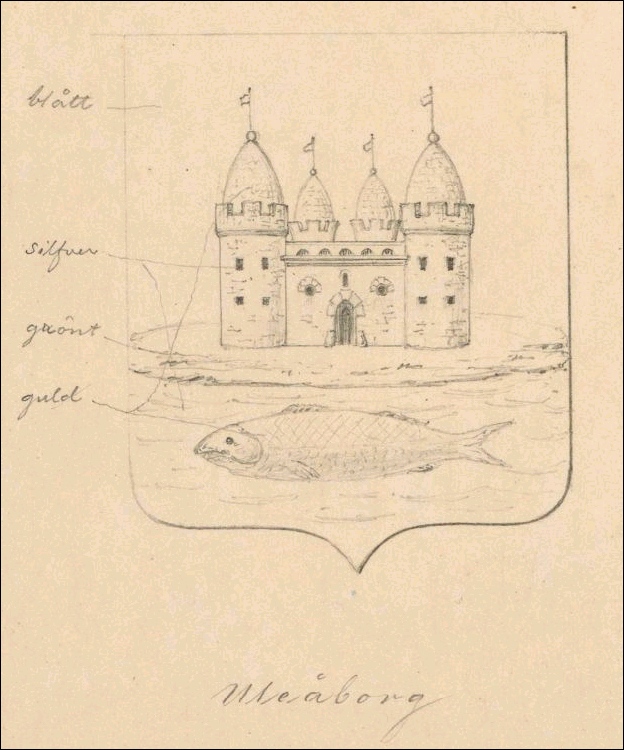 blått
silfver
grönt
guld
Uleåborg